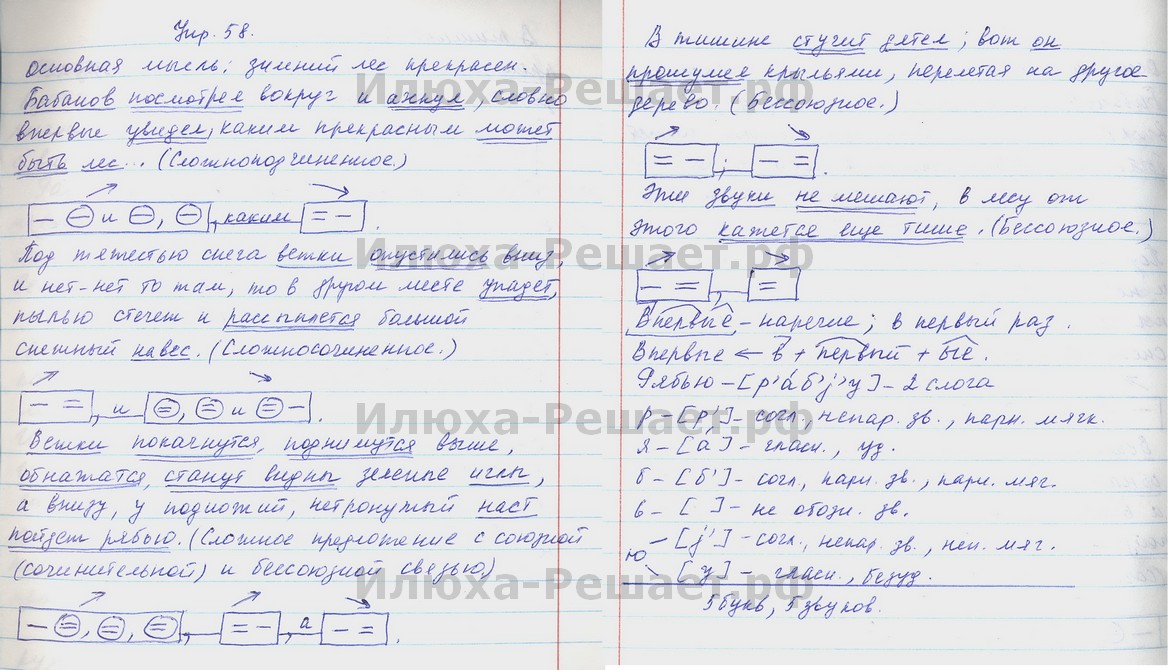 Упр. 58.
основная мысль: зимний лес прекрасен.
Бабанов посмотрел вокруг и ахнул, словно
впервые увидел, каким прекрасным может
быть лес... (Сложноподчиненное.)
[– ⊖ и ⊖, ⊖], каким [= –].
Под тяжестью снега ветки опустились вниз,
и нет-нет то там, то в другом месте упадет,
пылью стечет и рассыпается большой
снежный навес. (Сложносочиненное.)
[– =], и [⊜, ⊜ и ⊜ –].
Ветки покачнутся, поднимутся выше,
обнажатся, станут видны зеленые иглы,
а внизу, у подножий, нетронутый наст
пойдет рябью. (Сложное предложение с союзной
(сочинительной) и бессоюзной связью)
[– ⊜, ⊜, ⊜], [= –], а [– =].
В тишине стучит дятел; вот он
прошумел крыльями, перелетая на другое
дерево. (Бессоюзное.)
[= –]; [– =].
Эти звуки не мешают, в лесу от
этого кажется еще тише. (Бессоюзное.)
[– =], [=]
Впервые – наречие; в первый раз.
Впервые ← в + первый + ые.
Рябью – [р'áб'j'у] – 2 слога
р – [р'] – согл., непар. зв., парн. мягк.
я – [а] – гласн., уд.
б – [б'] – согл., парн. зв., парн. мяг.
ь – [ ] – не обозн. зв.
ю – [j'] – согл., непар. зв., неп. мяг.
[у] – гласн., безуд.
5 букв, 5 звуков.
Илюха-Решает.рф
Илюха-Решает.рф
Илюха-Решает.рф
Илюха-Решает.рф
Илюха-Решает.рф
Илюха-Решает.рф